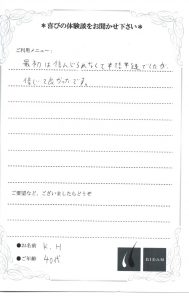 ＊喜びの体験談をお聞かせ下さい＊
ご利用メニュー：
最初は信んじられなくて半信半疑でしたが、
信じて良かったです。
ご要望など、ございましたらどうぞ
●お名前 K.H
●ご年齢 40代